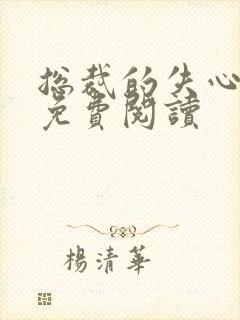 总裁的失心
免費閱讀
楊清華